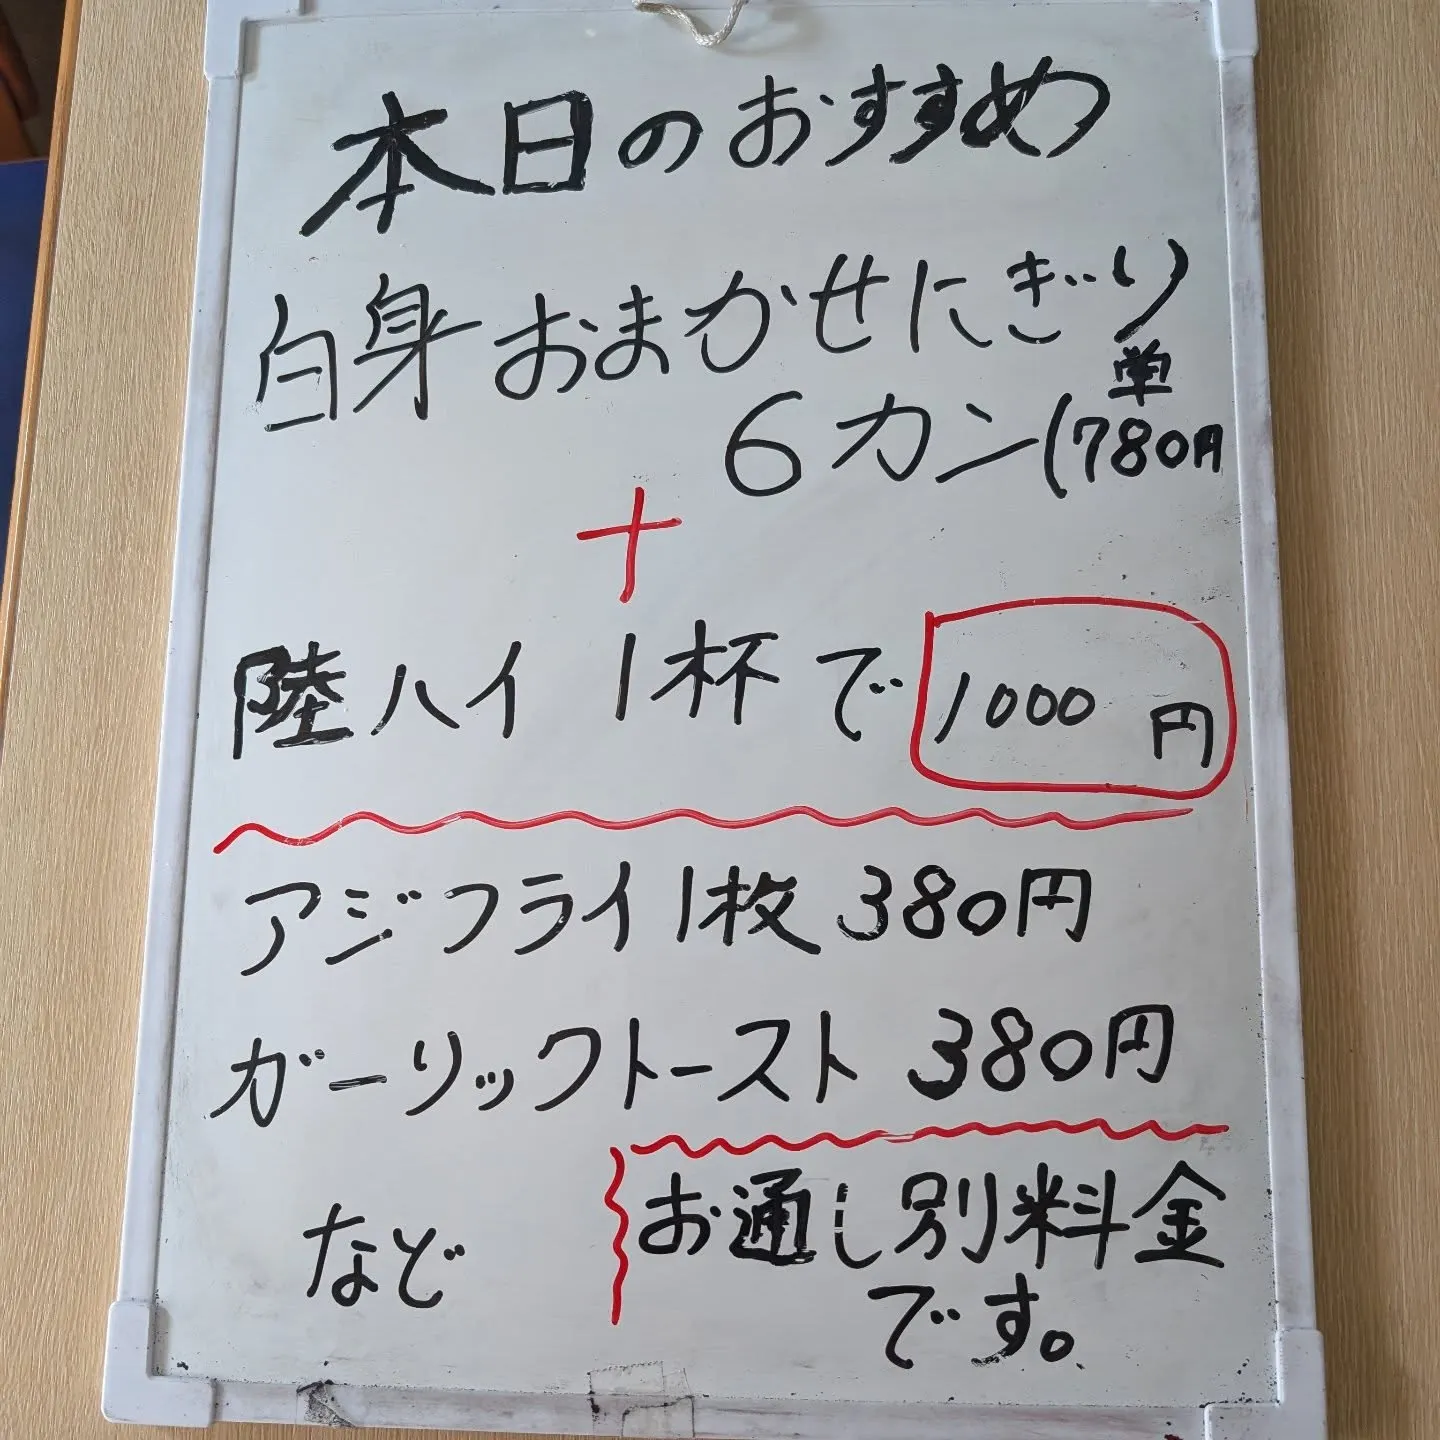 本日のおすすめ
白身おまかせにぎり
6カン(単780円
+
陸ハイ 1杯で 1000円
アジフライ1枚 380円
ガーリックトースト 380円
など
お通し別料金
です。